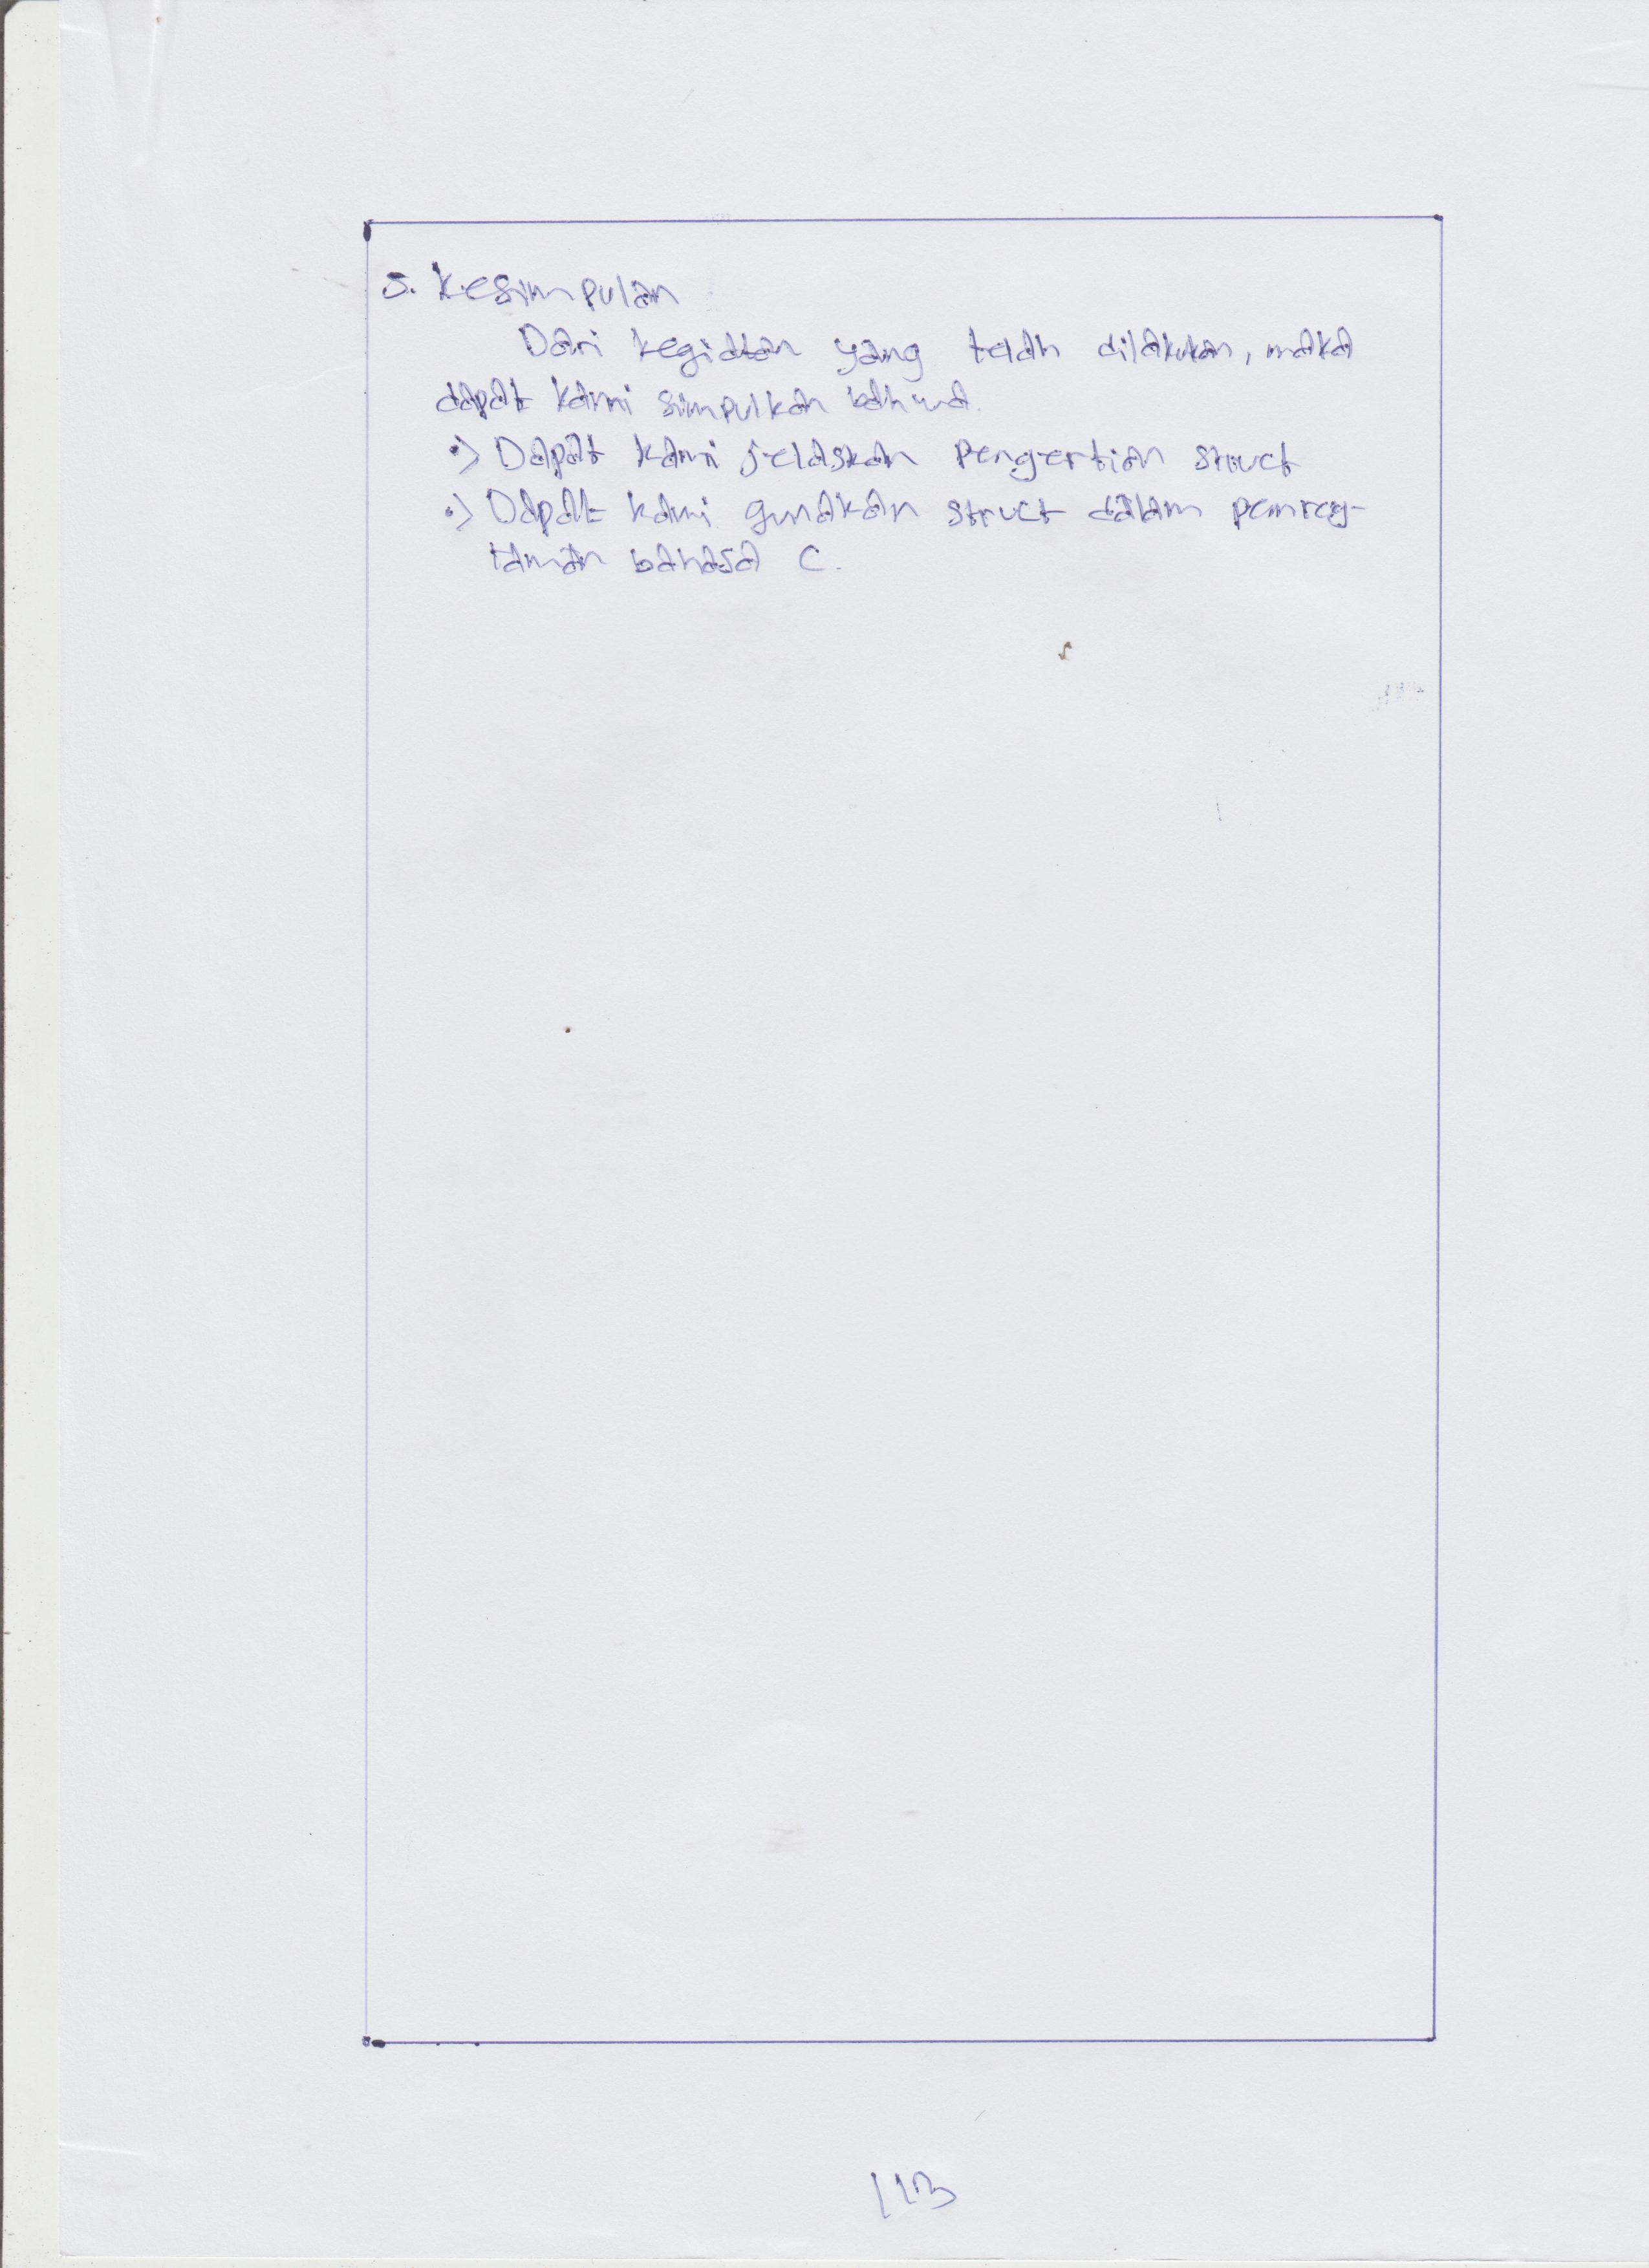 5. Kesimpulan
Dari kegiatan yang telah dilakukan, maka
dapat kami simpulkan bahwa.
•> Dapat kami jelaskan Pengertian struct
•> Dapat kami gunakan struct dalam pemrog-
raman bahasa C.
113